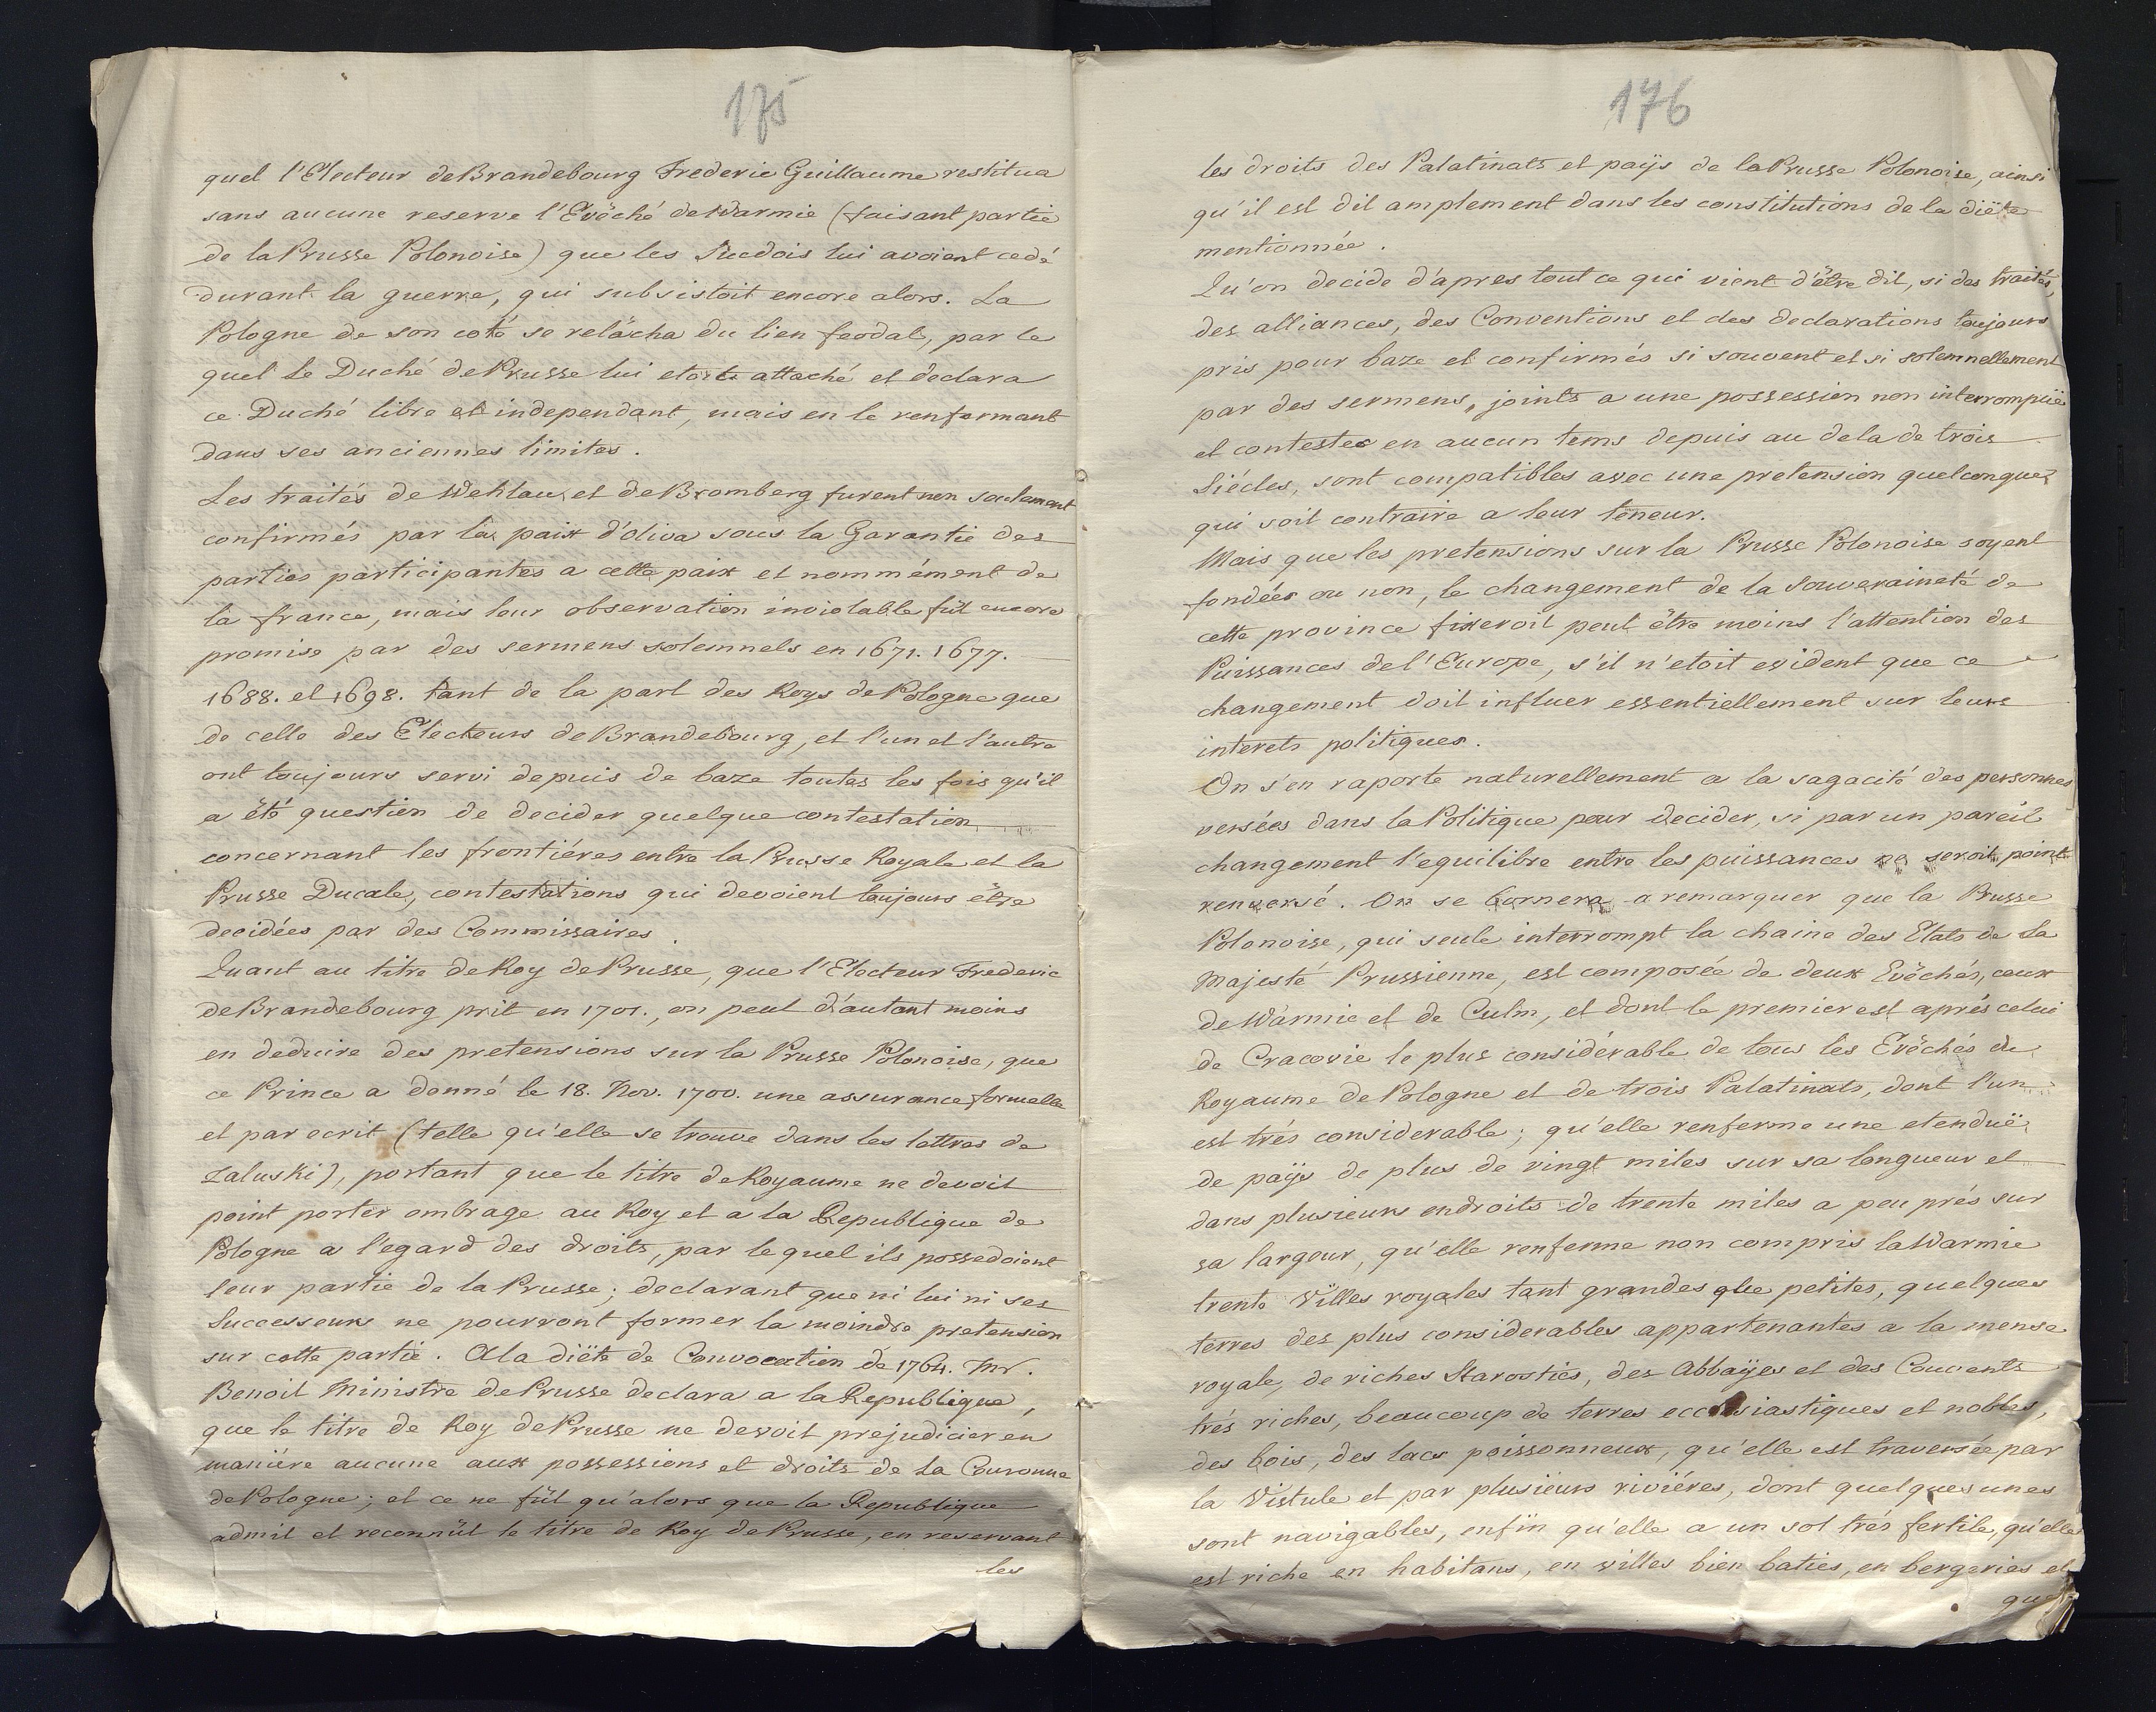 175
quel l'Electeur de Brandebourg Frederic Guillaume restitua
sans aucune reserve l'Evëché de Warmie (faisant partie
de la Prusse Polonoise) que les Suedois lui avoient cedé
durant la guerre, qui subsistoit encore alors. La
Pologne de son coté se relächa du lien feodal, par le
quel le Duché de Prusse lui etoit attaché et declara
ce Duché libre et independant, mais en le renfermant
dans ses anciennes limites.
Les traités de Wehlau et de Bromberg furent non seulement
confirmés par la paix d'oliva sous la Garantie des
parties participantes a cette paix et nommément de
la france, mais leur observation inviolable füt encore
promise par des sermens solemnels en 1671. 1677.
1688. et 1698. tant de la part des Roys de Pologne que
de celle des Electeurs de Brandebourg, et l'un et l'autre
ont toujours servi depuis de baze toutes les fois qu'il
a ëté question de decider quelque contestation
concernant les frontiéres entre la Prusse Royale et la
Prusse Ducale, contestations qui devoient toujours ëtre
decidées par des Commissaires.
Quant au titre de Roy de Prusse, que l'Electeur Frederic
de Brandebourg prit en 1701., on peut d'autant moins
en deduire des pretensions sur la Prusse Polonoise, que
ce Prince a donné le 18. Nov. 1700. une assurance formelle
et par ecrit (telle qu'elle se trouve dans les lettres de
Zaluski), portant que le titre de Royaume ne devoit
point porter ombrage au Roy et a la Republique de
Pologne a l'egard des droits, par lequel ils possedoient
leur partie de la Prusse; declarant que ni lui ni ses
Successeurs ne pourront former la moindre pretension
sur cette partie. A la diëte de Convocation de 1764. Mr.
Benoit Ministre de Prusse declara a la Republique,
que le titre de Roy de Prusse ne devoit prejudicier en
maniére aucune aux possessions et droits de la Couronne
de Pologne; et ce ne füt qu'alors que la Republique
admit et reconnüt le titre de Roy de Prusse, en reservant
les
176
les droits des Palatinats et paÿs de la Prusse Polonoise, ainsi
qu'il est dit amplement dans les constitutions de la diëte
mentionnée.
Qu'on decide d'apres tout ce qui vient d'ëtre dit, si des traités,
des alliances, des Conventions et des declarations toujours
pris pour baze et confirmés si souvent et si solemnellement
par des sermens, joints a une possession non interrompuë
et contestée en aucun tems depuis au dela de trois
Siécles, sont compatibles avec une pretension quelconque,
qui soit contraire a leur teneur.
Mais que les pretensions sur la Prusse Polonoise soyent
fondées ou non, le changement de la Souveraineté de
cette province fixeroit peut ëtre moins l'attention des
Puissances de l'Europe, s'il n'etoit evident que ce
changement doit influer essentiellement sur leurs
interets politiques.
On s'en raporte naturellement a la sagacité des personnes
versées dans la Politique pour decider, si par un pareil
changement l'equilibre entre les puissances ne seroit point
renversé. On se bornera a remarquer que la Prusse
Polonoise, qui seule interrompt la chaine des Etats de Sa
Majesté Prussienne, est composée de deux Evëchés, ceux
de Warmie et de Culm, et dont le premier est aprés celui
de Cracovie le plus considérable de tous les Evëchés du
Royaume de Pologne et de trois Palatinats, dont l'un
est trés considerable; qu'elle renferme une etenduë
de paÿs de plus de vingt miles sur sa longueur et
dans plusieurs endroits de trente miles a peu prés sur
sa largeur, qu'elle renferme non compris la Warmie
trente Villes royales tant grandes que petites, quelques
terres des plus considerables appartenantes a la mense
royale, de riches Starosties, des Abbaÿes et des Couvents
trés riches, beaucoup de terres ecclesiastiques et nobles,
des bois, des lacs poissonneux, qu'elle est traversée par
la Vistule et par plusieurs riviéres, dont quelques unes
sont navigables, enfin qu'elle a un sol trés fertile, qu'elle
est riche en habitans, en villes bien baties, en bergeries et
que